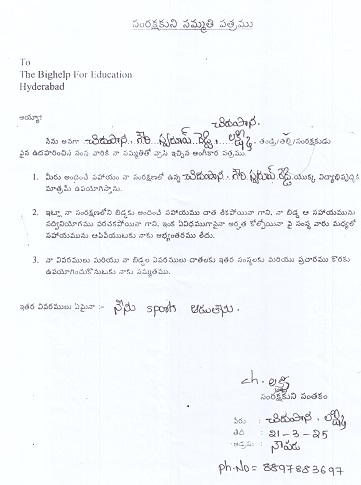 సంరక్షకుని సమ్మతి పత్రము
To
The Bighelp For Education
Hyderabad
అయ్యా!
నేను అనగా చిరుపాన గౌరీ స్వరూప్ రెడ్డి లక్ష్మి తండ్రి/తల్లి/సంరక్షకుడు
పైన ఉదహరించిన సంస్థ వారికి నా సమ్మతితో వ్రాసి ఇచ్చిన అంగీకార పత్రము.
1. మీరు అందించే సహాయం నా సంరక్షణలో ఉన్న చిరుపాన గౌరీ స్వరూప్ రెడ్డి యొక్క విద్యాభివృద్ధికి
మాత్రమే ఉపయోగిస్తాను.
2. ఇట్లా నా సంరక్షణలోని బిడ్డకు అందించే సహాయము దాత లేకపోయినా గాని, నా బిడ్డ ఆ సహాయమును
సద్వినియోగము పరచకపోయినా గాని, ఇంక ఏవిధముగానైనా అర్హత కోల్పోయినా పై సంస్థ వారు మధ్యలో
సహాయమును ఆపివేయుటకు నాకు అభ్యంతరము లేదు.
3. నా వివరములు మరియు నా బిడ్డల వివరములు దాతలకు ఇతర సంస్థలకు మరియు ప్రచారము కొరకు
ఉపయోగించుకొనుటకు నాకు సమ్మతము.
ఇతర వివరములు ఏమైనా :- నేను sports ఆడుతాను.
ch. లక్ష్మి
సంరక్షకుని సంతకం
పేరు : చిరుపాన లక్ష్మి
తేది : 21-3-25
అడ్రసు : నౌపడ
ph.No = 8897883697